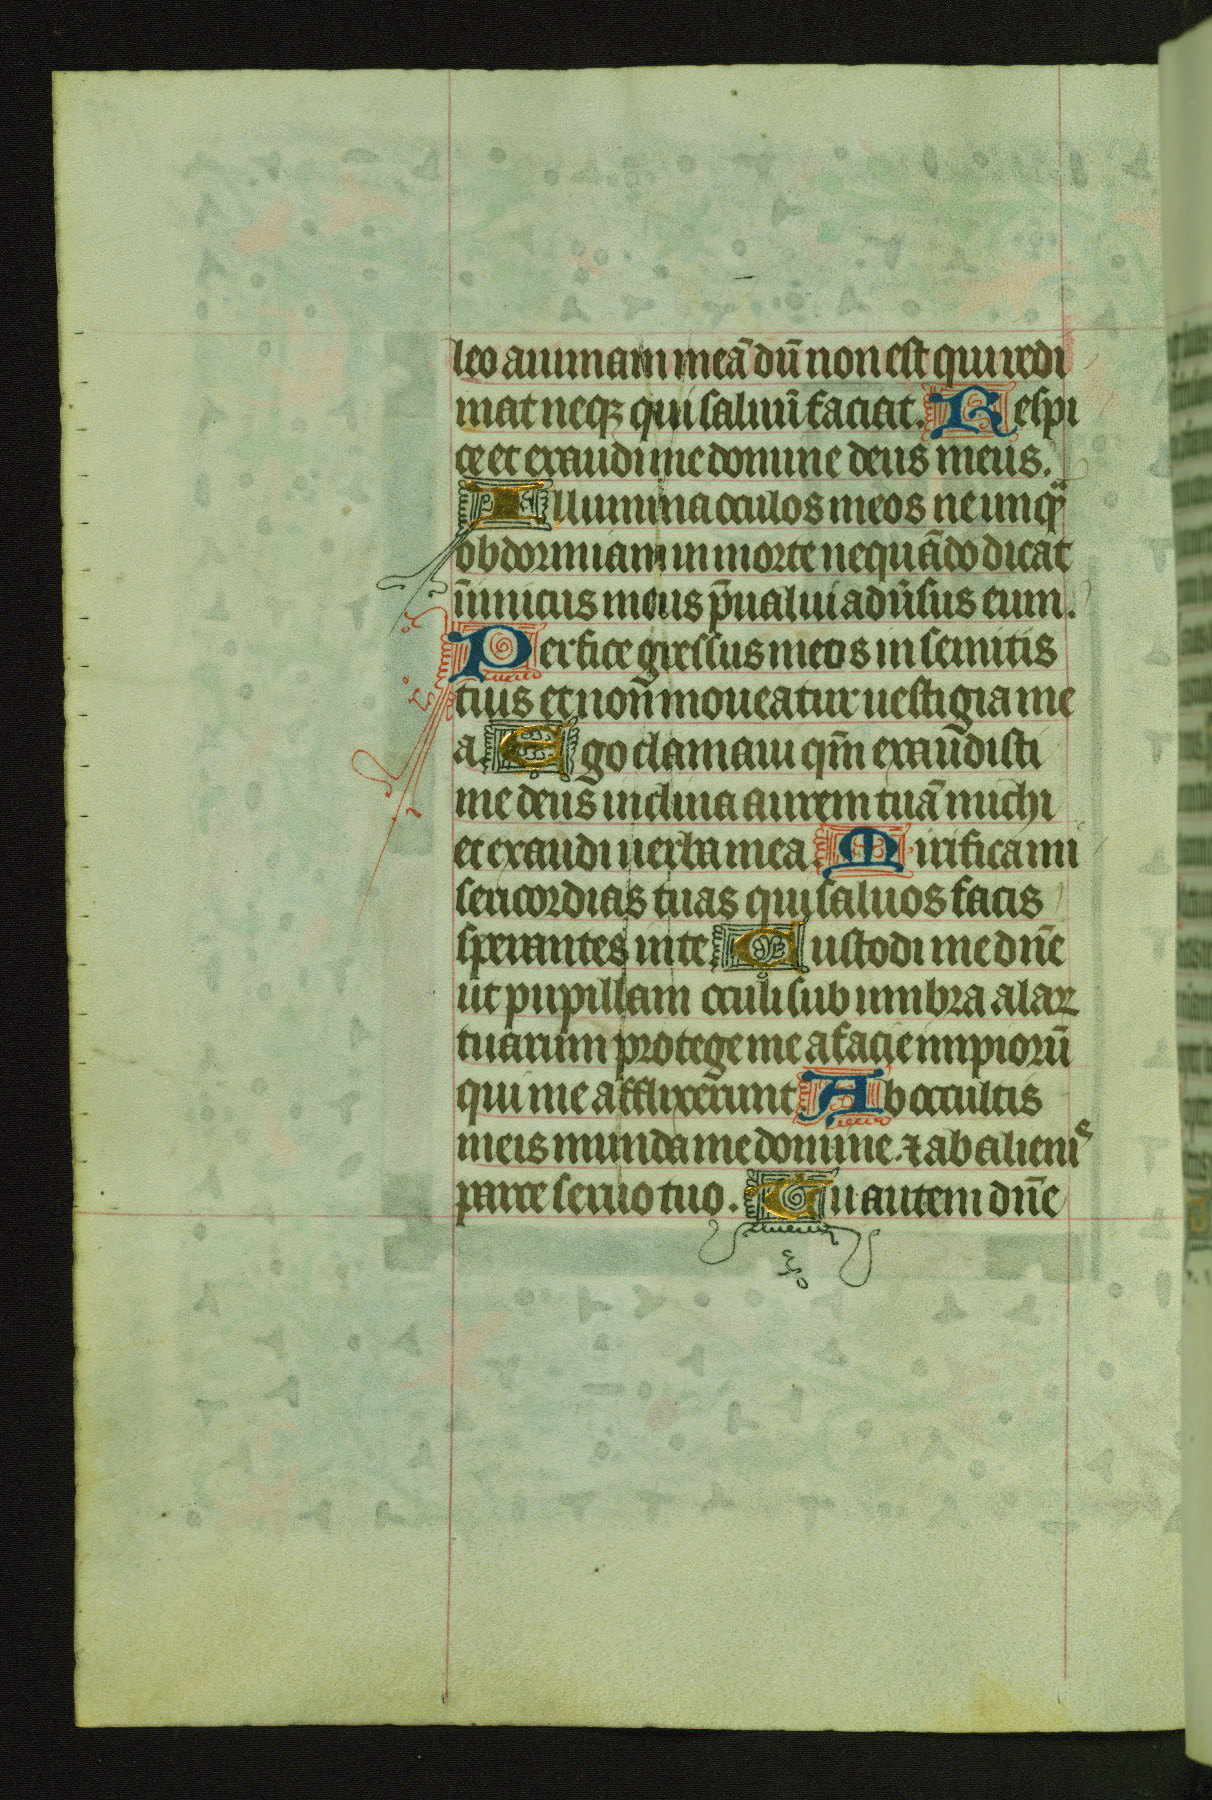 leo animam meā dū non est qui redi
mat neqꝫ qui saluū faciat. Respi
ce et exaudi me domine deus meus.
Illumina oculos meos ne unqᷓ
obdormiam in morte nequādo dicat
īimicus meus p̄ualui adūsus eum.
Perfice gressus meos in semitis
tuis et non̄ moueatur uestigia me
a Ego clamaui qm̄ exaudisti
me deus inclina aurem tuā michi
et exaudi uerba mea. Mirifica mi
sericordias tuas qui saluos facis
sperantes in te Custodi me dn̄e
ut pupillam oculi sub umbra alaꝝ
tuarum protege me a facie impiorū
qui me afflixerunt Ab occultis
meis munda me domine. ⁊ ab alienis
parce seruo tuo. Tu autem dn̄e